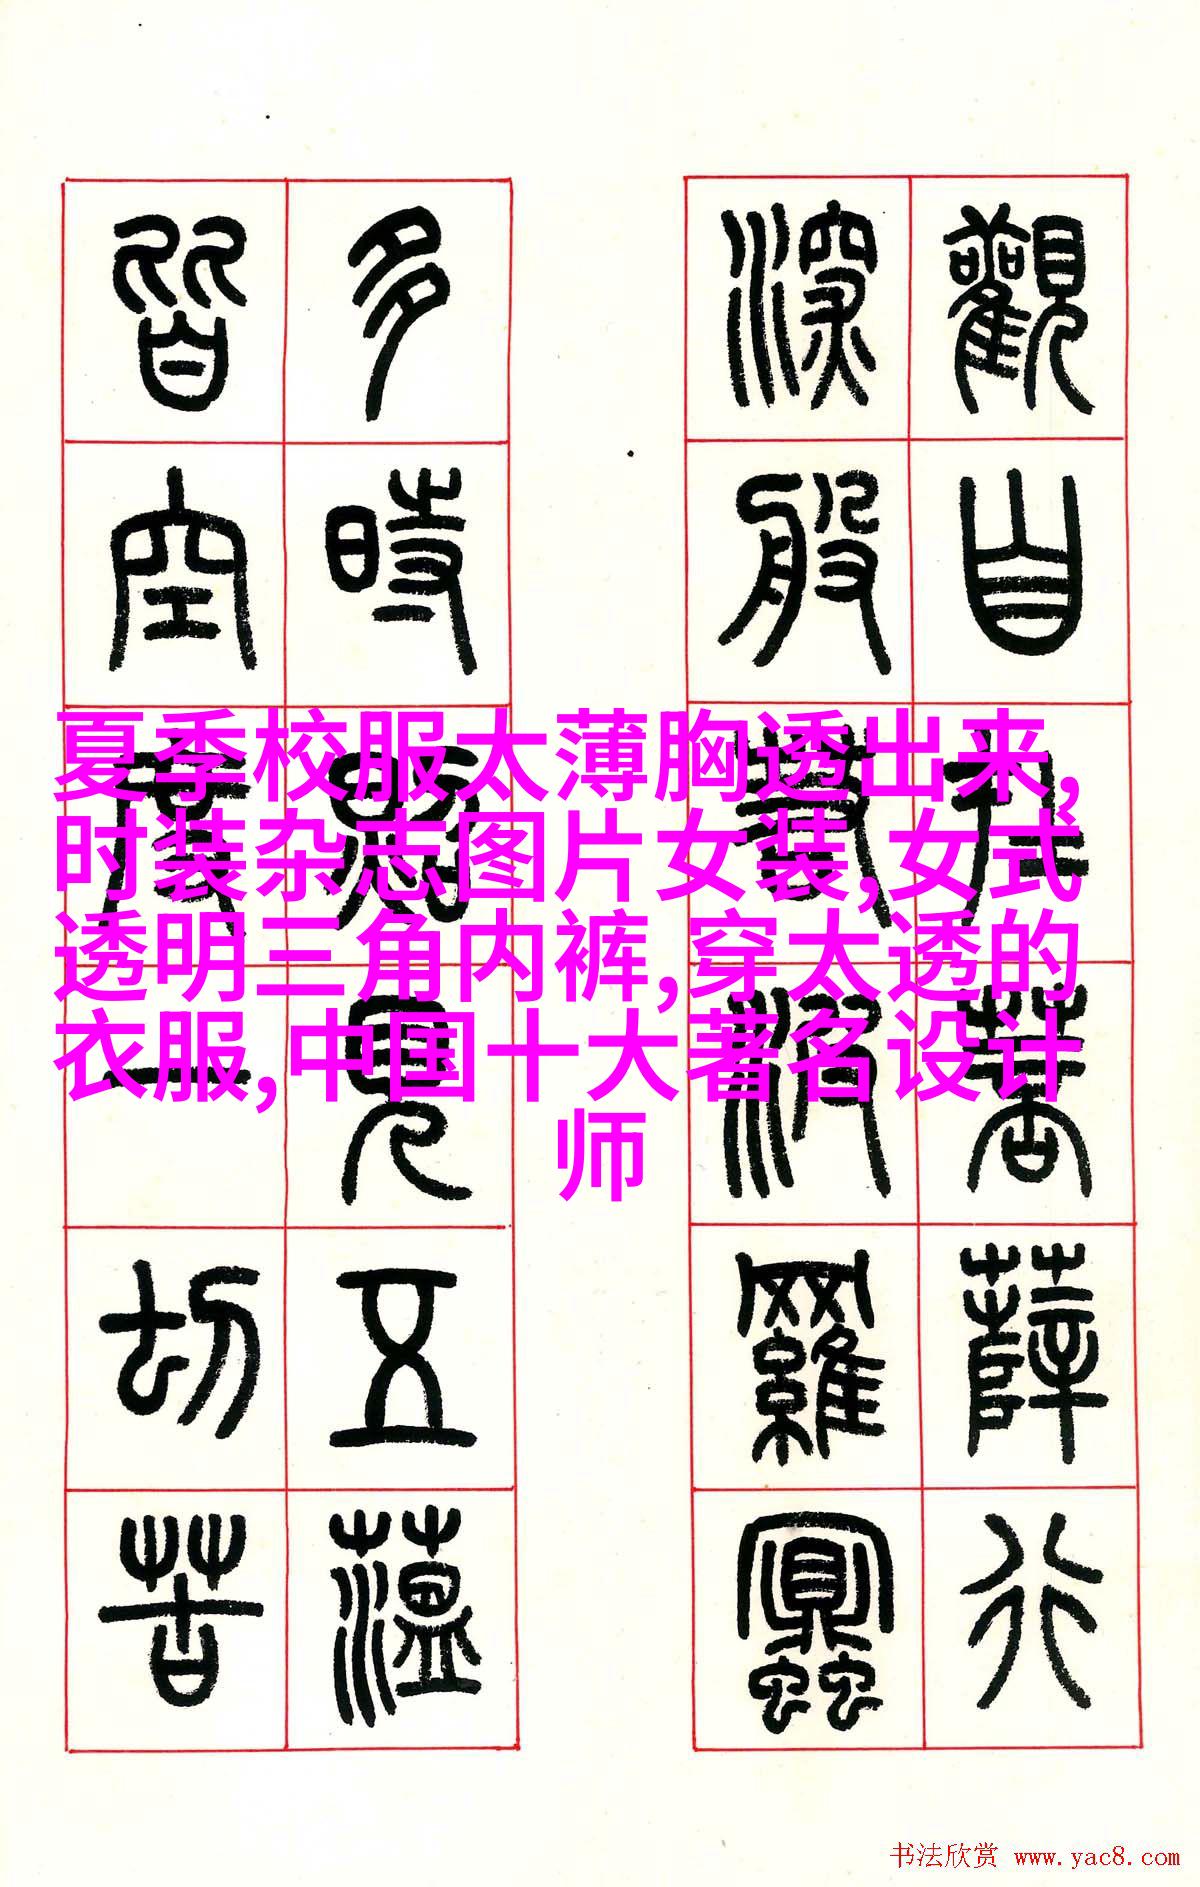 觀自在菩薩行
深般若波羅蜜
多時照見五薀
皆空度一切苦
夏季校服太薄胸透出来,
时装杂志图片女装,女式
透明三角内裤,穿太透的
衣服,中国十大著名设计
师
书法欣赏 www.yac8.com